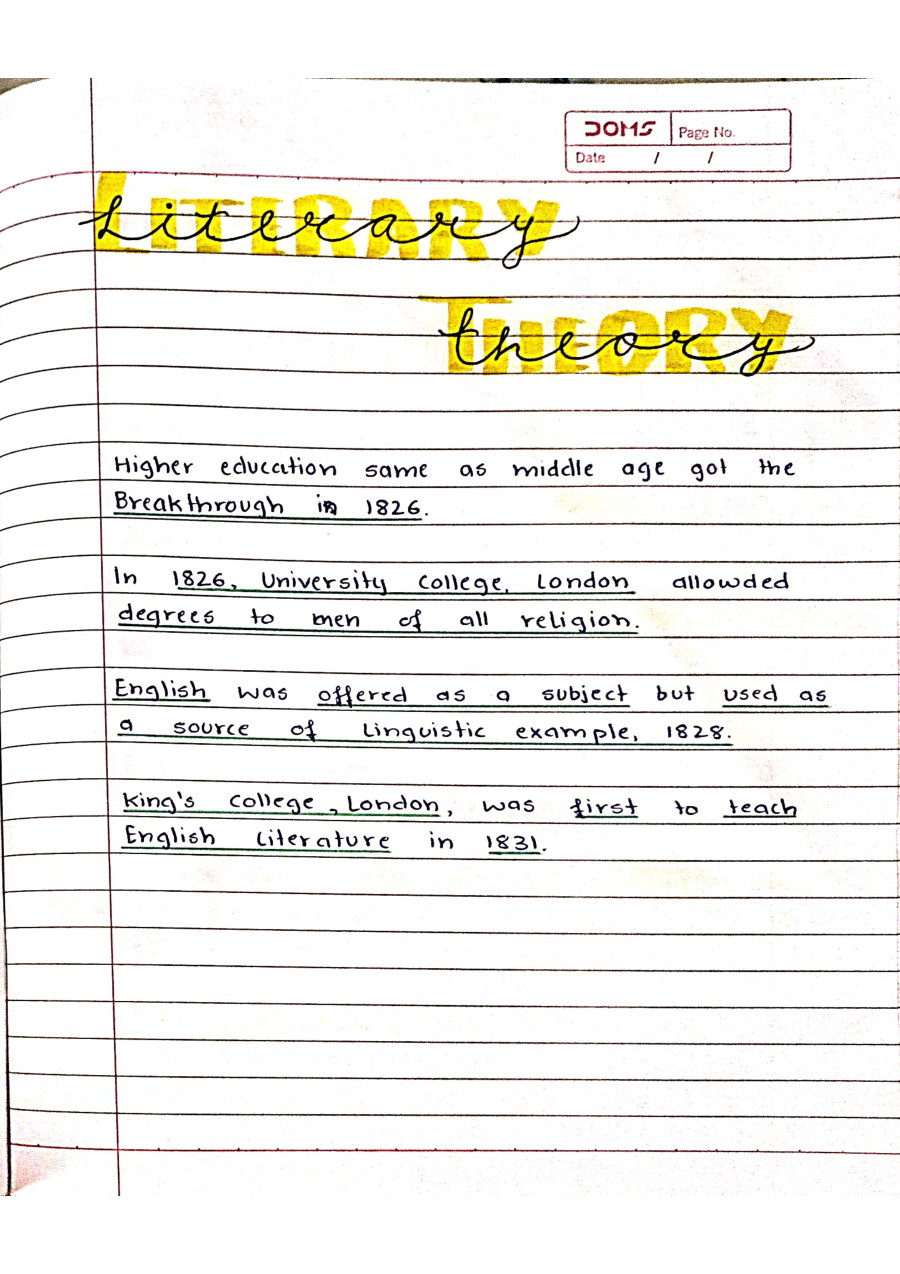 DOMS Page No.
Date / /
Literary
theory
Higher education same as middle age got the
Breakthrough in 1826.
In 1826, University College, London allowded
degrees to men of all religion.
English was offered as a subject but used as
a source of Linguistic example, 1828.
King's College, London, was first to teach
English Literature in 1831.